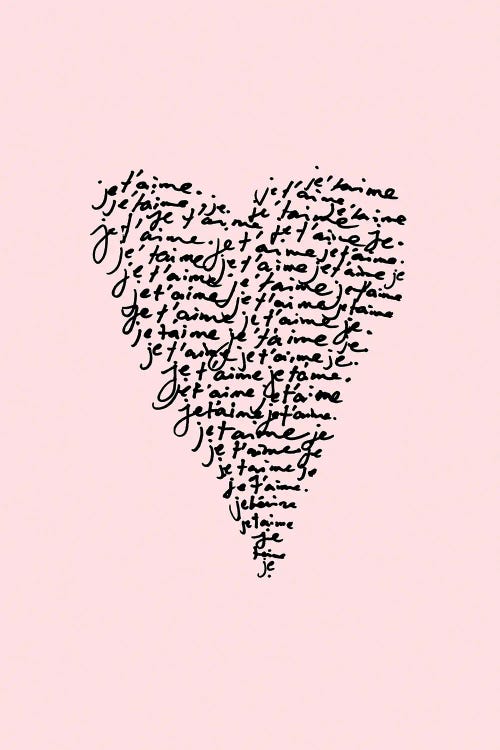 je t'aime. je t'aime
je t'aime, je. je t'aime
je t'aime je t'aime je t'aime
je t'aime je t'aime je.
je t'aime je t'aime je t'aime.
je t'aime je t'aime je t'aime je
je t'aime je t'aime je t'aime
je t'aime je t'aime je t'aime
je t'aime je t'aime je.
je t'aime je t'aime je.
je t'aime je t'aime je.
je t'aime je t'aime.
je t'aime je t'aime
je t'aime je t'aime.
je t'aime je
je t'aime je
je t'aime je
je t'aime.
je t'aime
je t'aime
je
t'aime
je